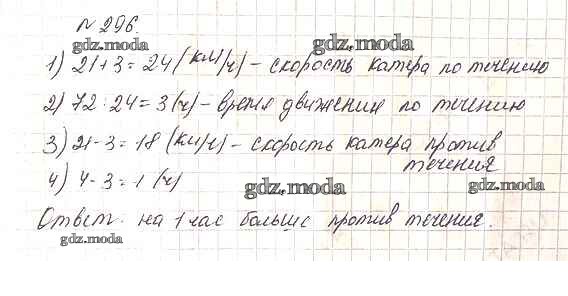 № 296.
gdz.moda
gdz.moda
1) 21+3=24 (км/ч) - скорость катера по течению
2) 72:24=3 (ч) - время движения по течению
3) 21-3=18 (км/ч) - скорость катера против
течения
4) 4-3=1 (ч)
gdz.moda
gdz.moda
Ответ: на 1 час больше против течения.
gdz.moda